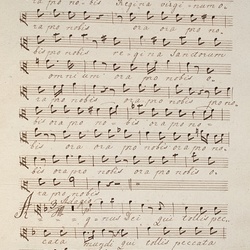 ra pro no - bis Regina virginum o -
ra pro nobis ora ora pro no -
bis pro nobis regina Sanctorum
omnium ora pro nobis o -
ra pro nobis ora pro nobis pro no -
bis pro nobis pro no - bis -
bis ora ora pro nobis ora pro no -
bis ora pro nobis ora pro nobis o -
ra pro nobis
Adagio
A - gnus Dei qui tollis pec -
cata mundi qui tollis peccata